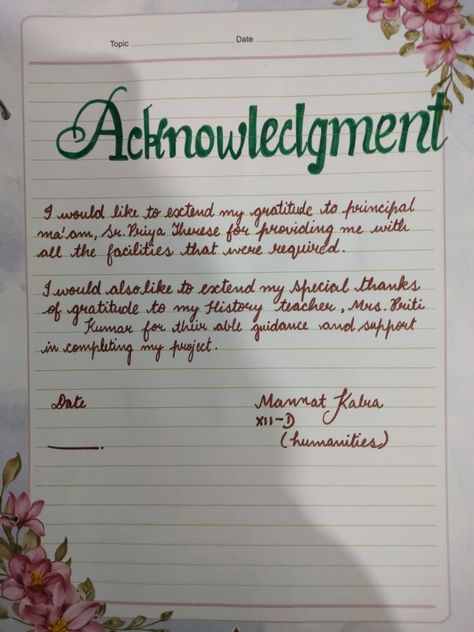 Topic Date
Acknowledgment
I would like to extend my gratitude to principal
ma'am, Sr. Priya Therese for providing me with
all the facilities that were required.
I would also like to extend my special thanks
of gratitude to my History teacher, Mrs. Priti
Kumar for their able guidance and support
in completing my project.
Date Mannat Kalra
XII-D
(humanities)